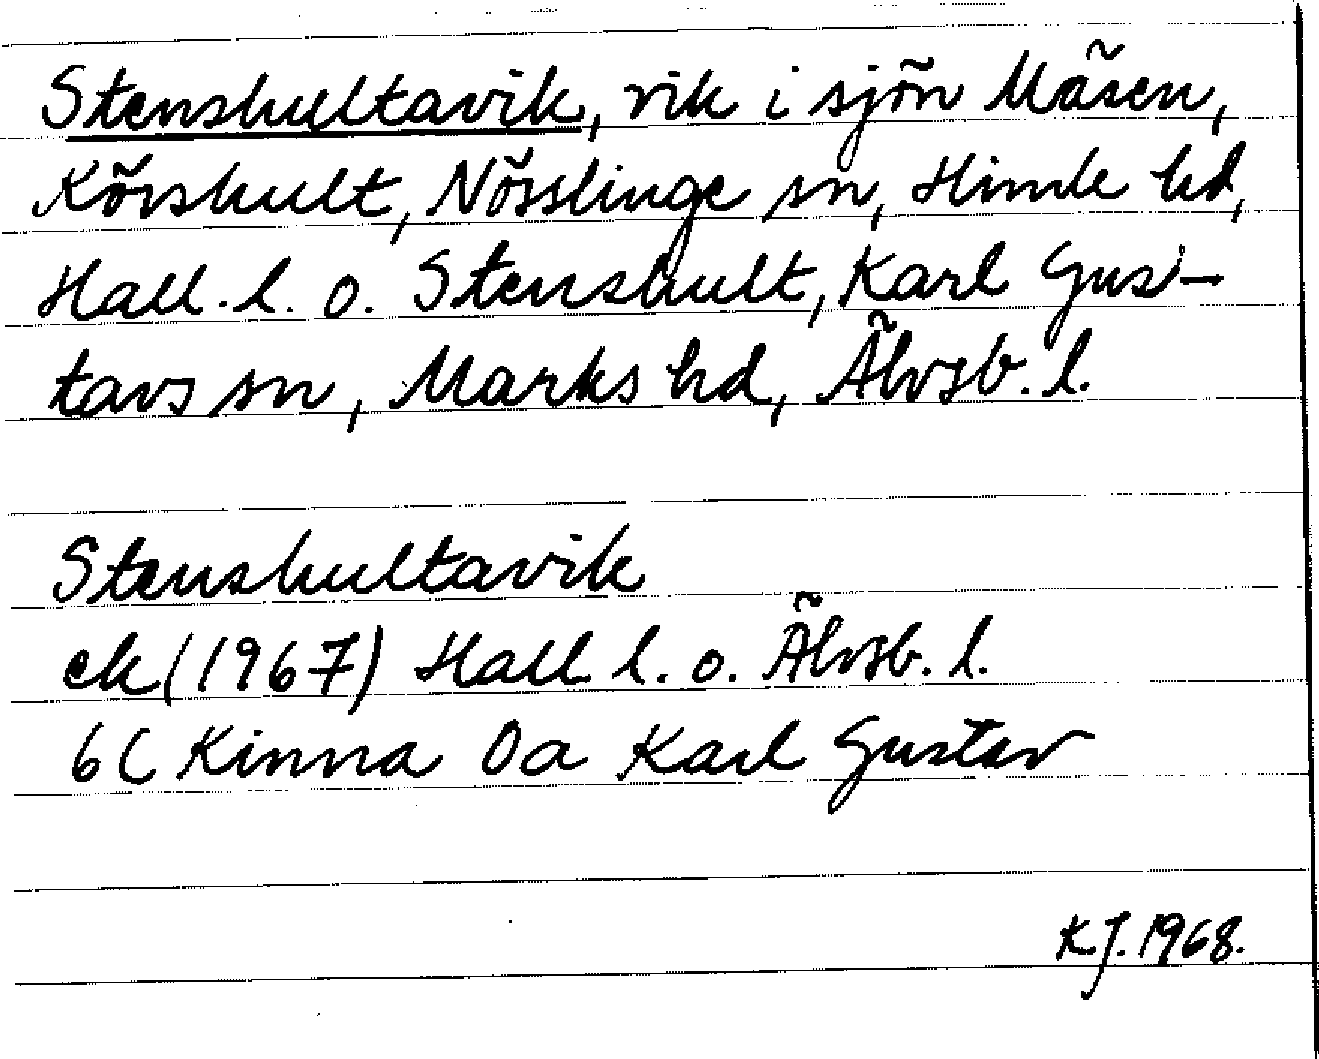 Stenshultavik, vik i sjön Mäsen,
Körshult, Nösslinge sn, Himle hd,
Hall. l. o. Stenshult, Karl Gus-
tavs sn, Marks hd, Älvsb. l.
Stenshultavik
ek (1967) Hall l. o. Älvsb. l.
6C Kinna 0a Karl Gustav
KJ. 1968.